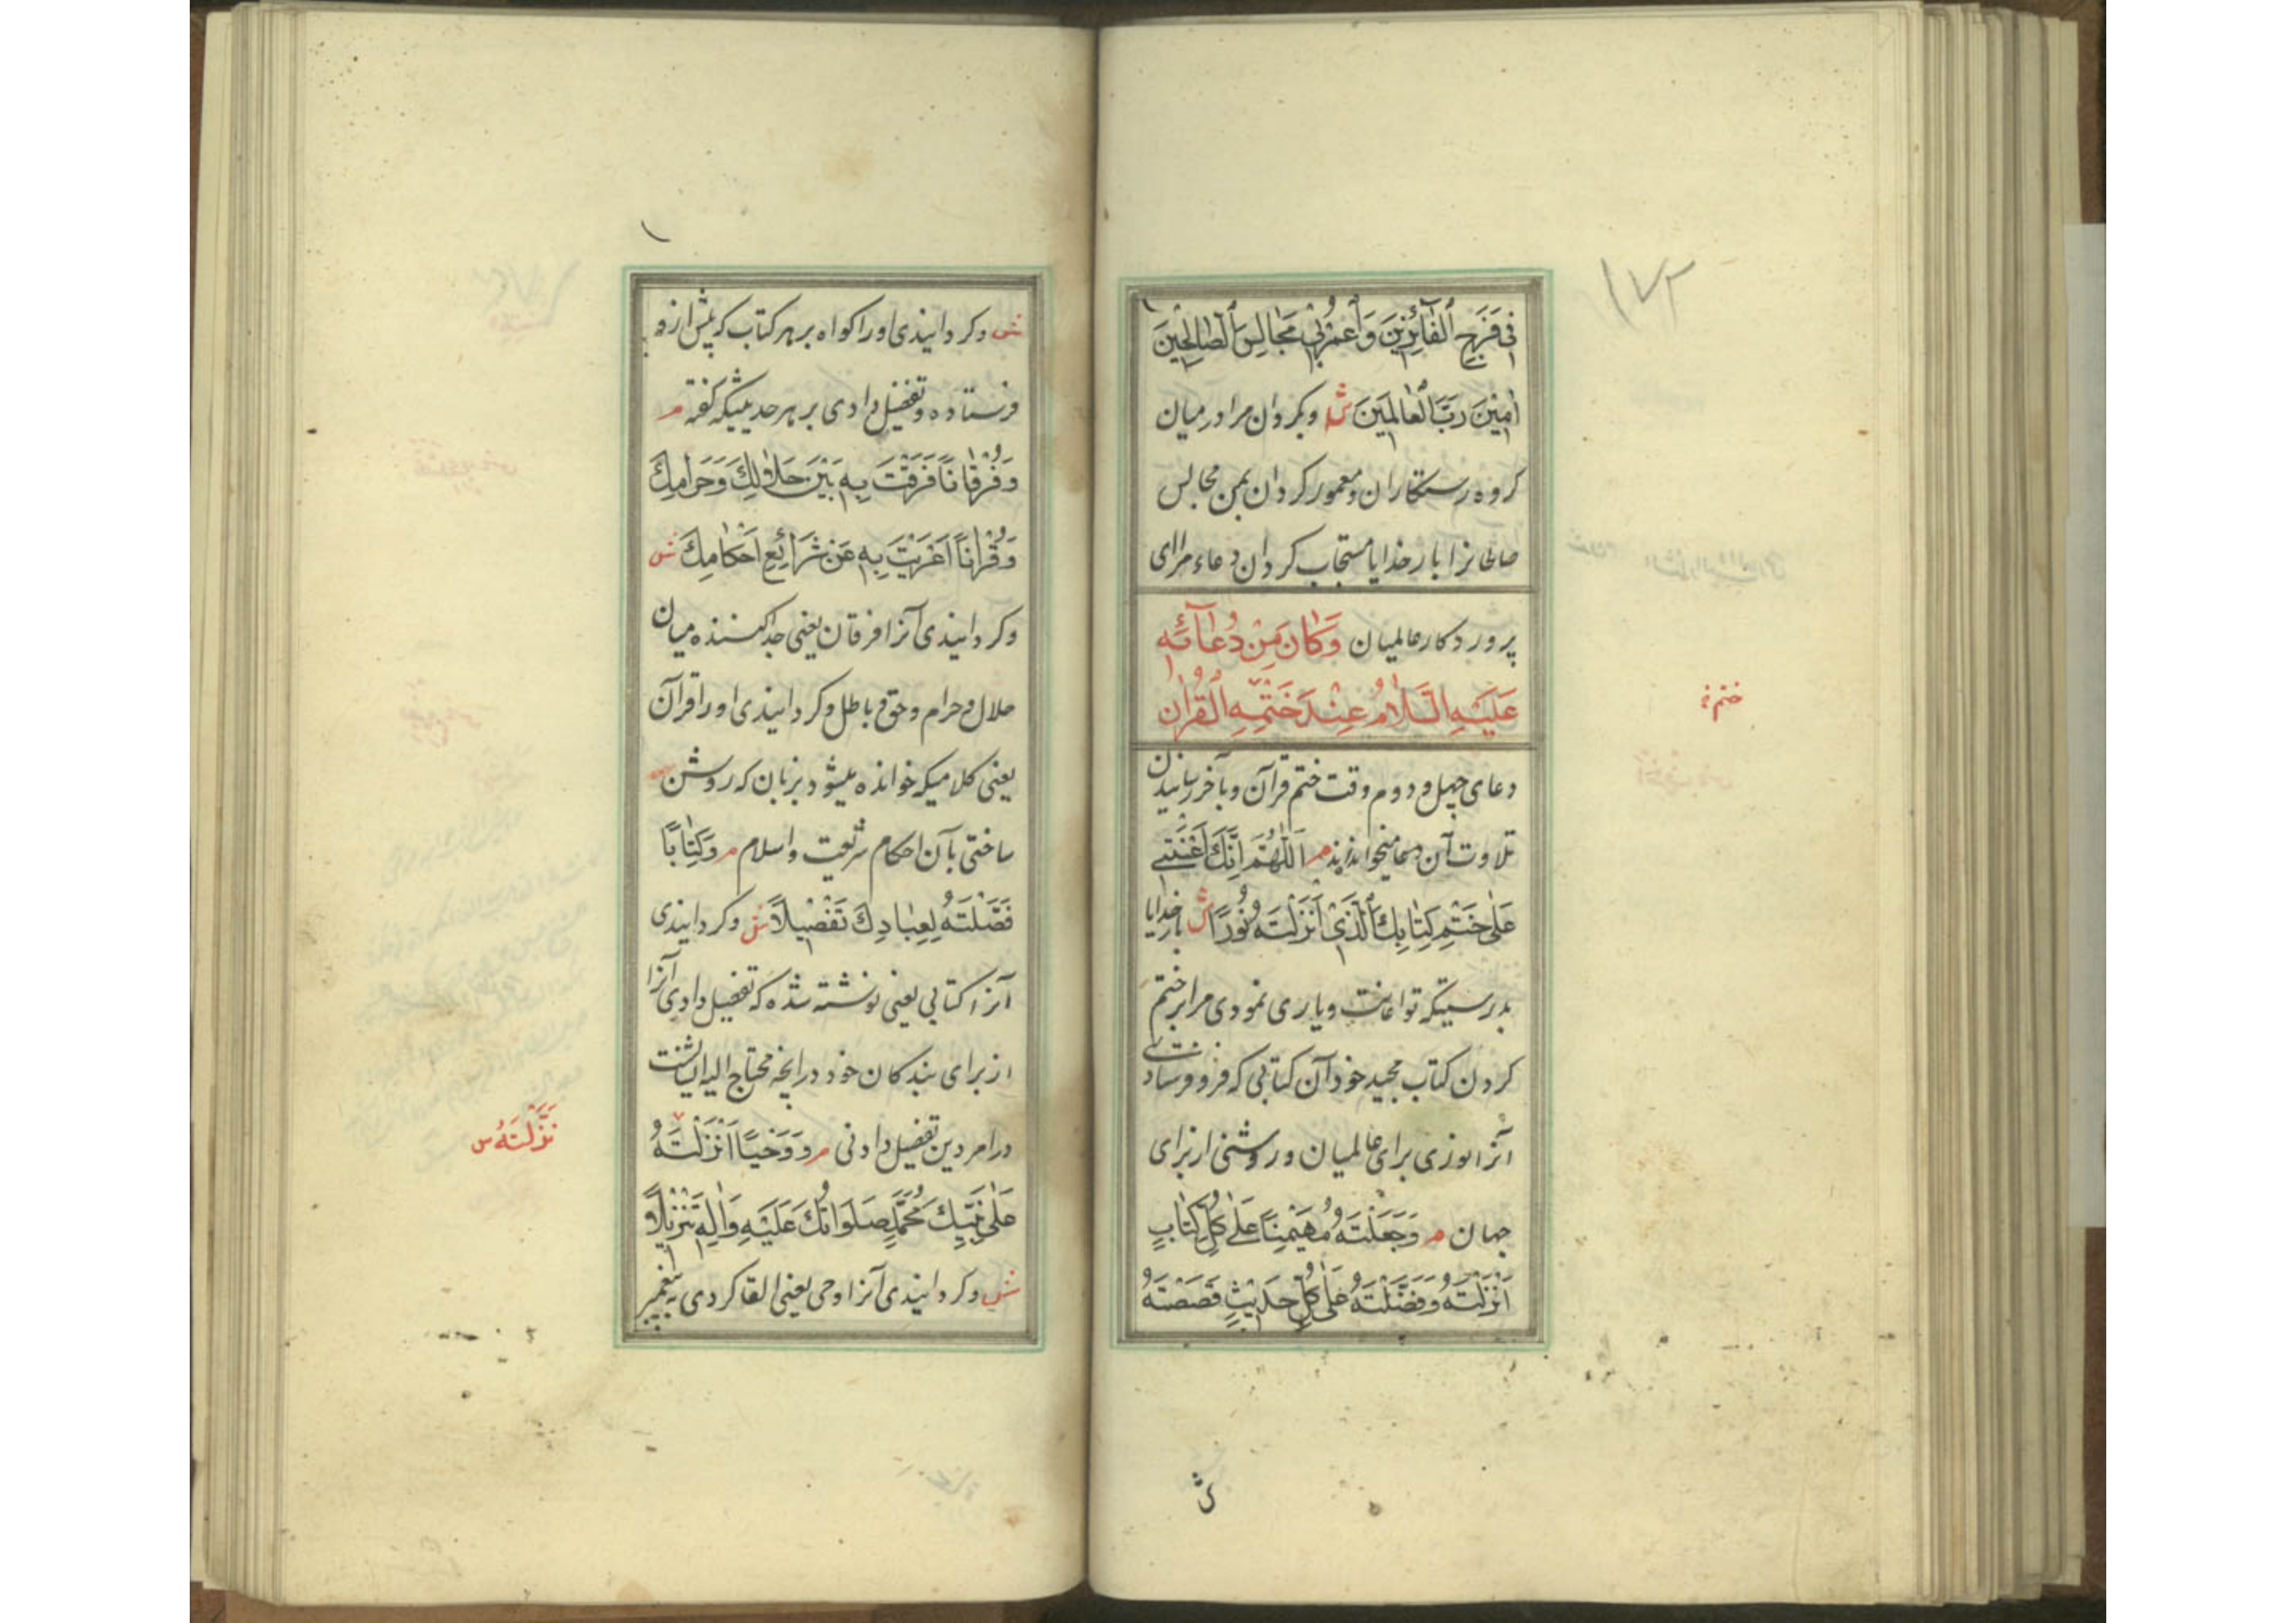 ١٧٢
فِي فَزَعِ ٱلْفَآئِزِينَ وَٱعْمُرْ بِي مَجَالِسَ ٱلصّٰالِحِينَ
اٰمِينَ رَبَّ ٱلْعٰالَمِينَ ش وبكردان مرا در ميان
كروه رستكاران ومعمور كردان بمن مجالس
صالحانرا بار خدايا مستجاب كردان دعاء مرا اى
پروردكار عالميان وَكٰانَ مِنْ دُعٰآئِهِ
عَلَيْهِ السَّلٰامُ عِنْدَ خَتْمِهِ الْقُرْاٰنَ
ختم خ
دعاى چهل و دوم وقت ختم قرآن وبآخر رسانيدن
تلاوت آن دعا ميخواندند م اَللّٰهُمَّ اِنَّكَ اَعَنْتَنِي
عَلٰى خَتْمِ كِتٰابِكَ ٱلَّذِي اَنْزَلْتَهُ نُورًا ش بار خدايا
بدرستيكه تو اعانت ويارى نمودى مرا بر ختم
كردن كتاب مجيد خود آن كتابى كه فرو فرستادى
آنرا نورى براى عالميان وروشنى از براى
جهان م وَجَعَلْتَهُ مُهَيْمِنًا عَلٰى كُلِّ كِتٰابٍ
اَنْزَلْتَهُ وَفَضَّلْتَهُ عَلٰى كُلِّ حَدِيثٍ قَصَصْتَهُ
ش
ش وكردانيدى اورا كواه بر هر كتاب كه پيش ازو
فرستاده وتفضيل دادى بر هر حديثيكه كفته م
وَفُرْقٰانًا فَرَقْتَ بِهِ بَيْنَ حَلٰالِكَ وَحَرٰامِكَ
وَقُرْاٰنًا اَعْرَبْتَ بِهِ عَنْ شَرٰائِعِ اَحْكٰامِكَ ش
وكردانيدى آنرا فرقان يعنى جدا كننده ميان
حلال وحرام وحق وباطل وكردانيدى اورا قرآن
يعنى كلاميكه خوانده ميشود بزبان كه روشن
ساختى بآن احكام شريعت واسلام م وَكِتٰابًا
فَصَّلْتَهُ لِعِبٰادِكَ تَفْصِيلًا ش وكردانيدى
آنرا كتابى يعنى نوشته شده كه تفصيل دادى آنرا
از براى بندكان خود در آنچه محتاج اليه ايشانست
در امر دين تفصيل دادنى م وَوَحْيًا اَنْزَلْتَهُ
نَزَّلْتَهُ س
عَلٰى نَبِيِّكَ مُحَمَّدٍ صَلَوٰاتُكَ عَلَيْهِ وَاٰلِهِ تَنْزِيلًا
ش وكردانيدى آنرا وحى يعنى القا كردى پيغمبر